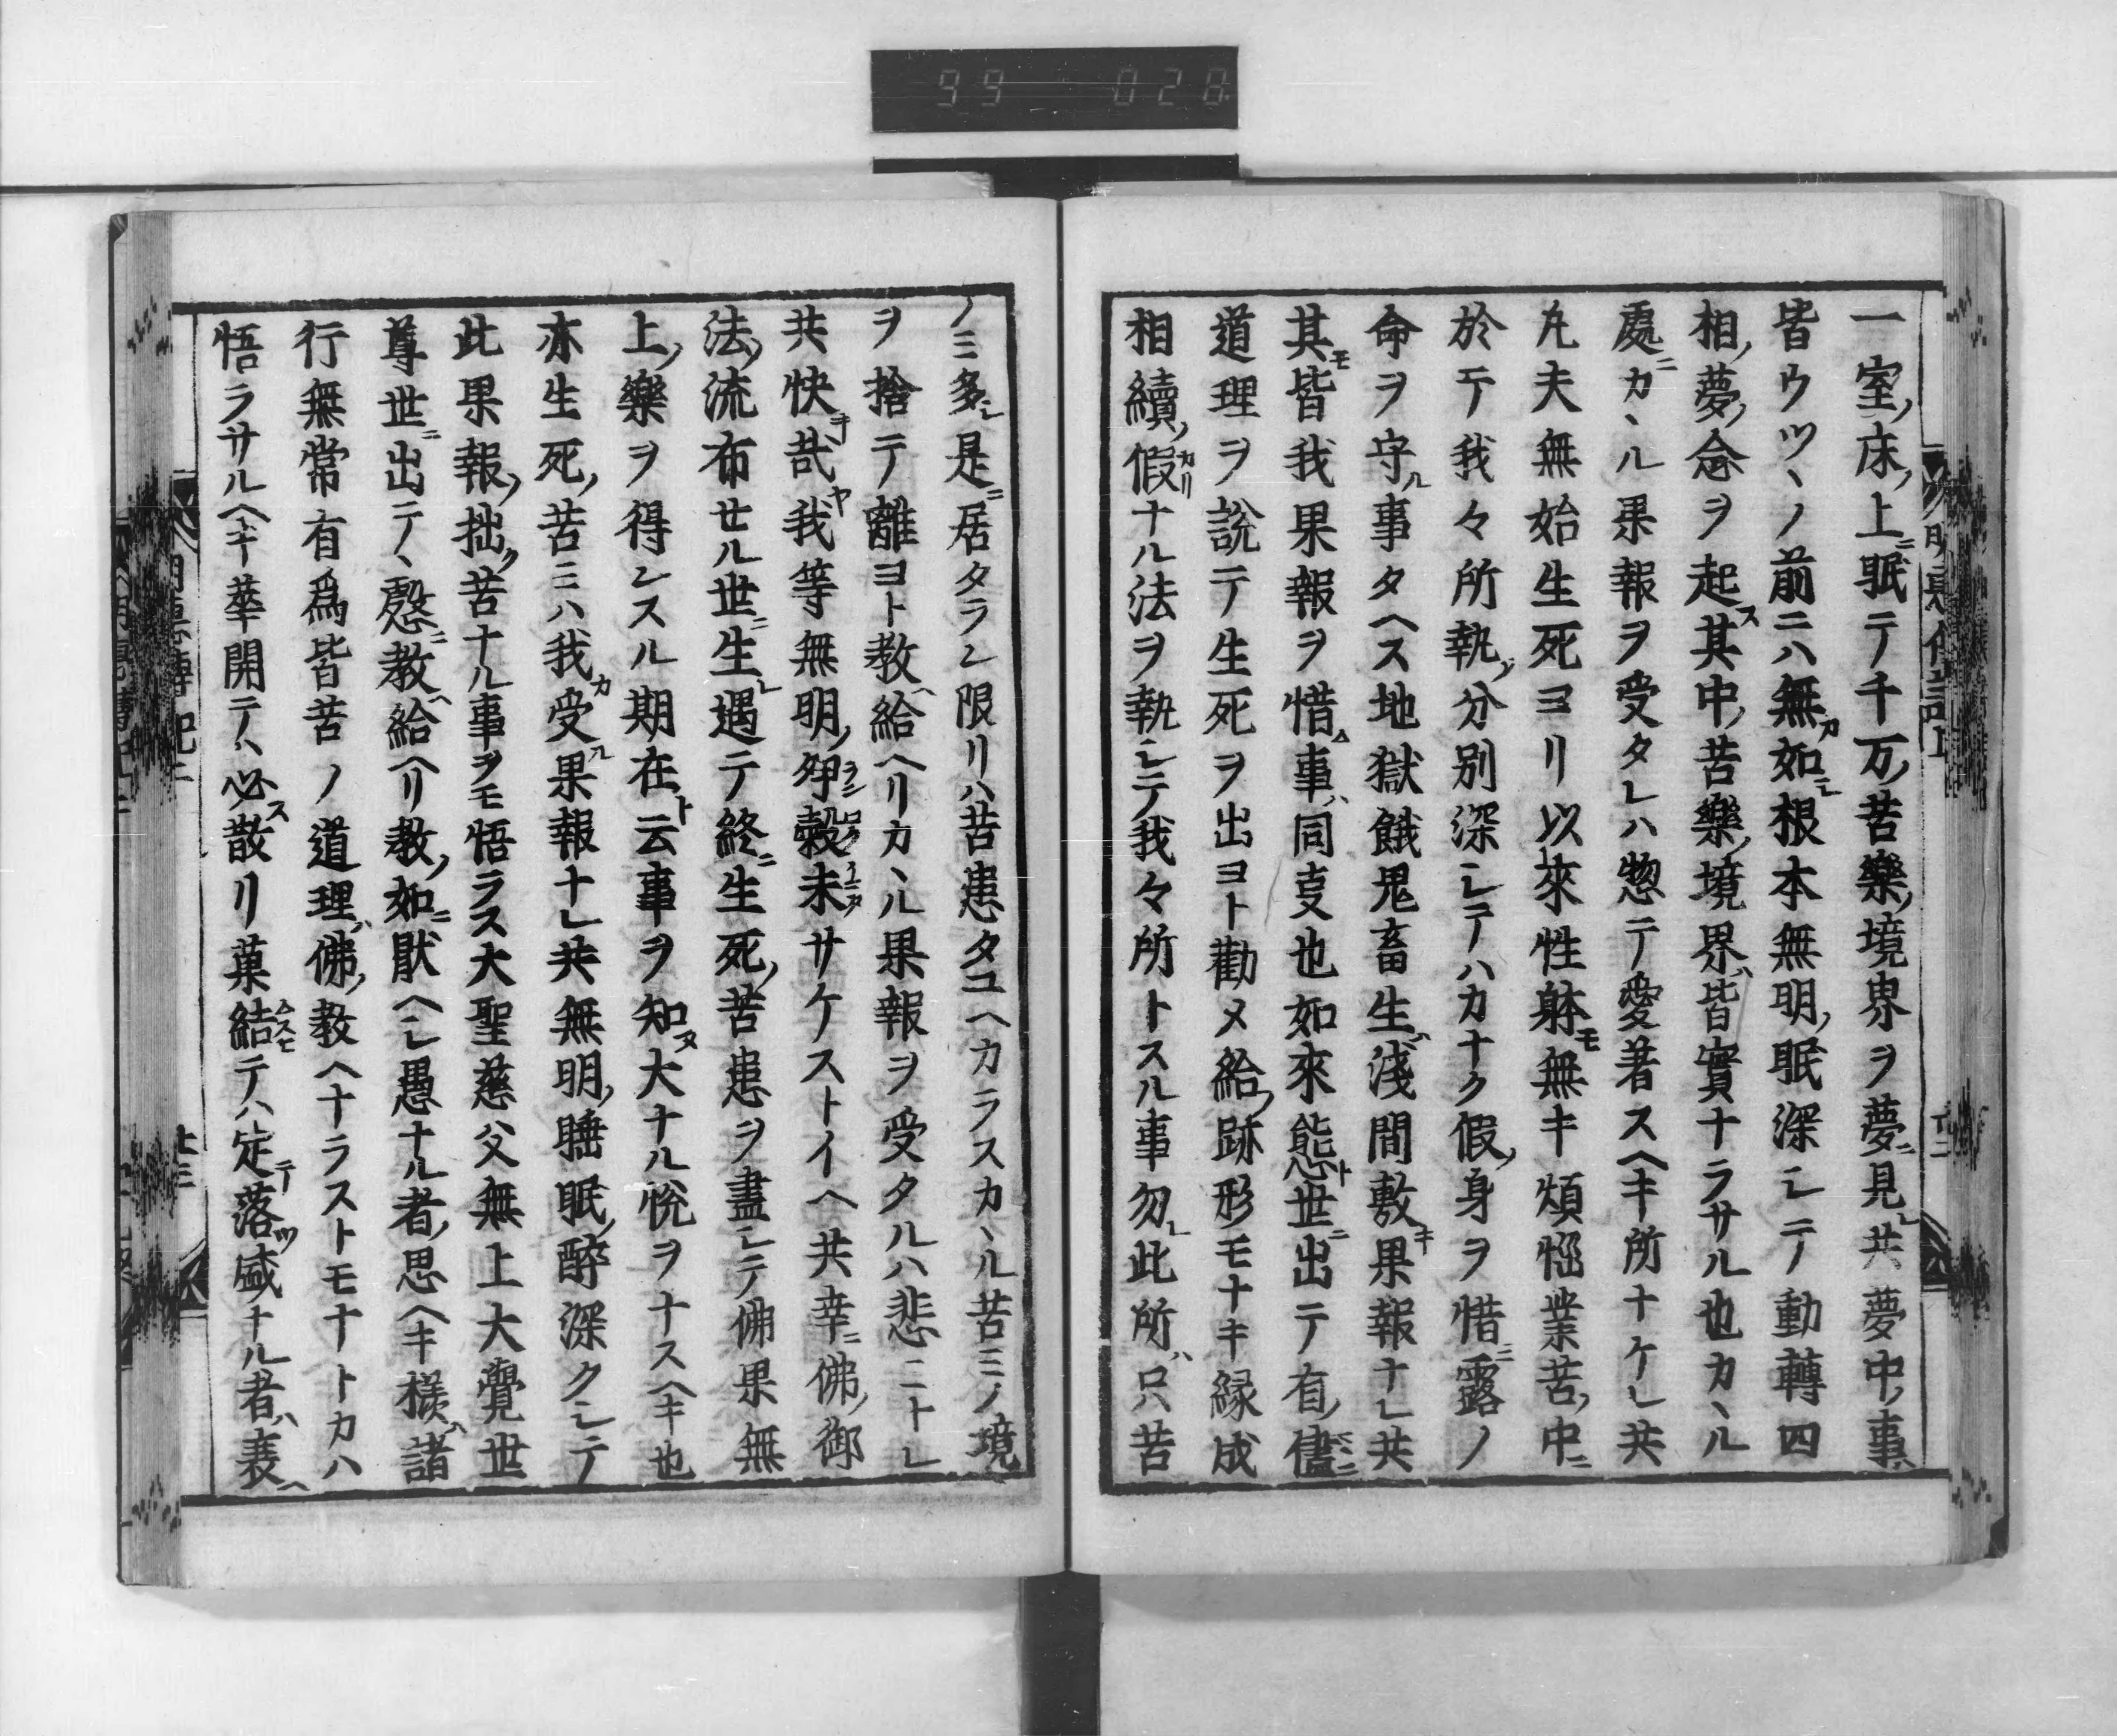 99 028
一室ノ床ノ上ニ眠テ千万ノ苦樂ノ境界ヲ夢ニ見レ共夢中ノ事ハ
皆ウツヽノ前ニハ無カ如シ根本無明ノ眠深シテ動轉四
相ノ夢ノ念ヲ起ス其中ノ苦樂ノ境界ハ皆實ナラサル也カヽル
處ニカヽル果報ヲ受タレハ惣テ愛著スヘキ所ナケレ共
凡夫無始生死ヨリ以來性躰モ無キ煩惱業苦ノ中ニ
於テ我々所ノ執ノ分別深シテハカナク假ノ身ヲ惜ミ露ノ
命ヲ守ル事タヘス地獄餓鬼畜生ノ淺間敷キ果報ナレ共
其モ皆我果報ヲ惜ム事ハ同事也如來態ト世ニ出テ有ノ儘ニ
道理ヲ説テ生死ヲ出ヨト勸メ給ノ跡形モナキ縁成
相續ノ假ナル法ヲ執シテ我々所トスル事勿レ此所ハ只苦
ノミ多シ是ニ居タラン限リハ苦患タユヘカラスカヽル苦ミノ境
ヲ捨テ離ヨト教ヘ給ヘリカヽル果報ヲ受タルハ悲ニトレ
共快キ哉ヤ我等無明ノ卵ノ㲉未タサケストイヘ共幸ニ佛ノ御
法ノ流布セル世ニ生レ遇テ終ニ生死ノ苦患ヲ盡シテ佛果無
上ノ樂ヲ得ンスル期在ト云事ヲ知ヌ大ナル悦ヲナスヘキ也
亦生死ノ苦ミハ我カ受ル果報ナレ共無明ノ睡眠ノ醉深クシテ
此果報ノ拙ク苦ナル事ヲモ悟ラス大聖慈父無上大覺世
尊世ニ出テヽ慇ニ教ヘ給ヘリ教ノ如ニ厭ヘシ愚ナル者ノ思ヘキ樣ハ諸
行無常有爲皆苦ノ道理ハ佛ノ教ヘナラストモナトカハ
悟ラサルヘキ華開テハ必ス散リ菓結テハ定テ落ツ盛ナル者ハ衰ヘ